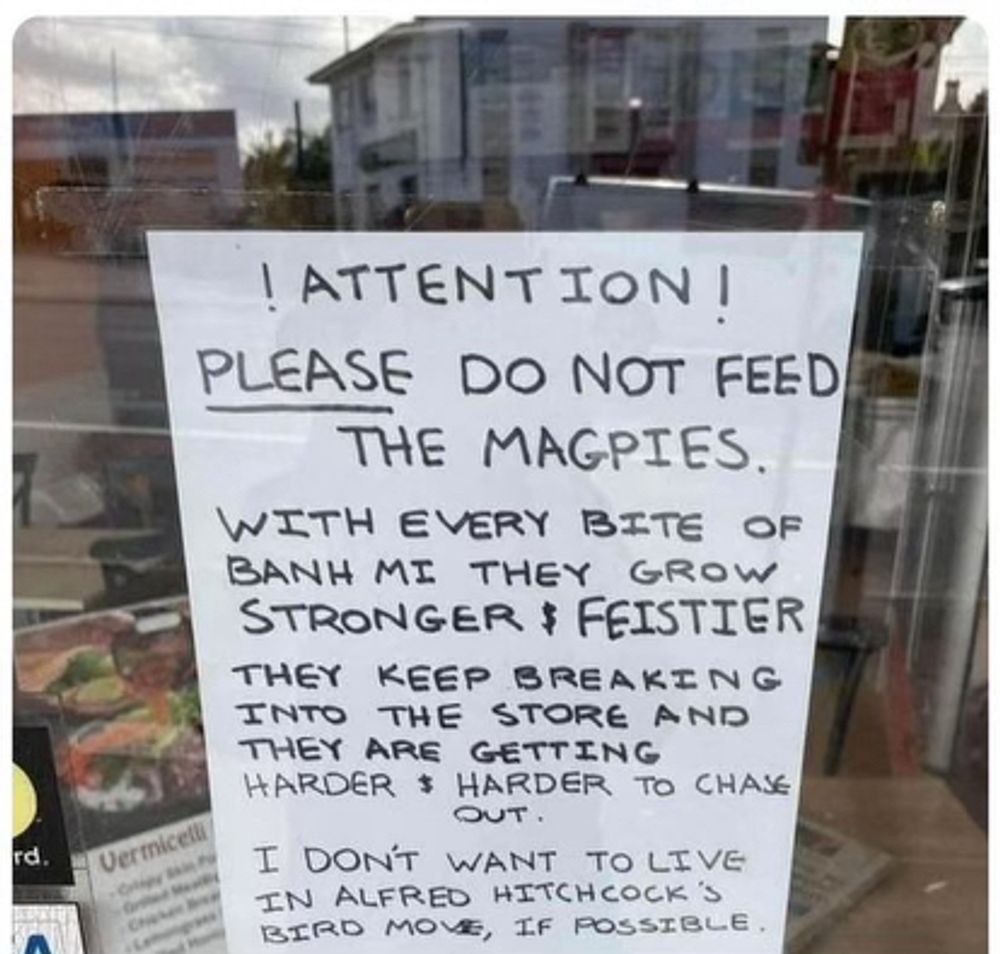 ! ATTENTION !
PLEASE DO NOT FEED
THE MAGPIES.
WITH EVERY BITE OF
BANH MI THEY GROW
STRONGER & FEISTIER
THEY KEEP BREAKING
INTO THE STORE AND
THEY ARE GETTING
HARDER & HARDER TO CHASE
OUT.
I DON'T WANT TO LIVE
IN ALFRED HITCHCOCK'S
BIRD MOVE, IF POSSIBLE.
rd.
Vermicelli
A